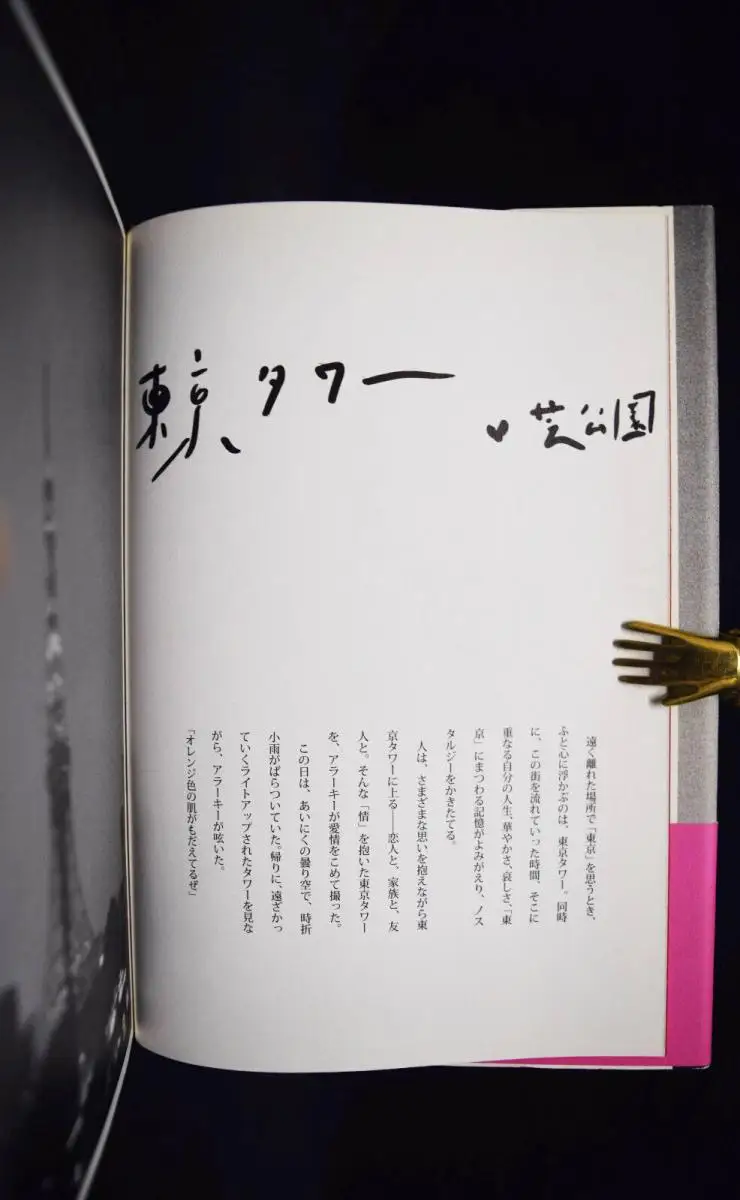 東京タワー
♥芝公園
遠く離れた場所で「東京」を思うとき、
ふと心に浮かぶのは、東京タワー。同時
に、この街を流れていった時間、そこに
重なる自分の人生、華やかさ、哀しさ、「東
京」にまつわる記憶がよみがえり、ノス
タルジーをかきたてる。
人は、さまざまな思いを抱えながら東
京タワーに上る――恋人と、家族と、友
人と。そんな「情」を抱いた東京タワー
を、アラーキーが愛情をこめて撮った。
この日は、あいにくの曇り空で、時折
小雨がぱらついていた。帰りに、遠ざかっ
ていくライトアップされたタワーを見な
がら、アラーキーが呟いた。
「オレンジ色の肌がもだえてるぜ」